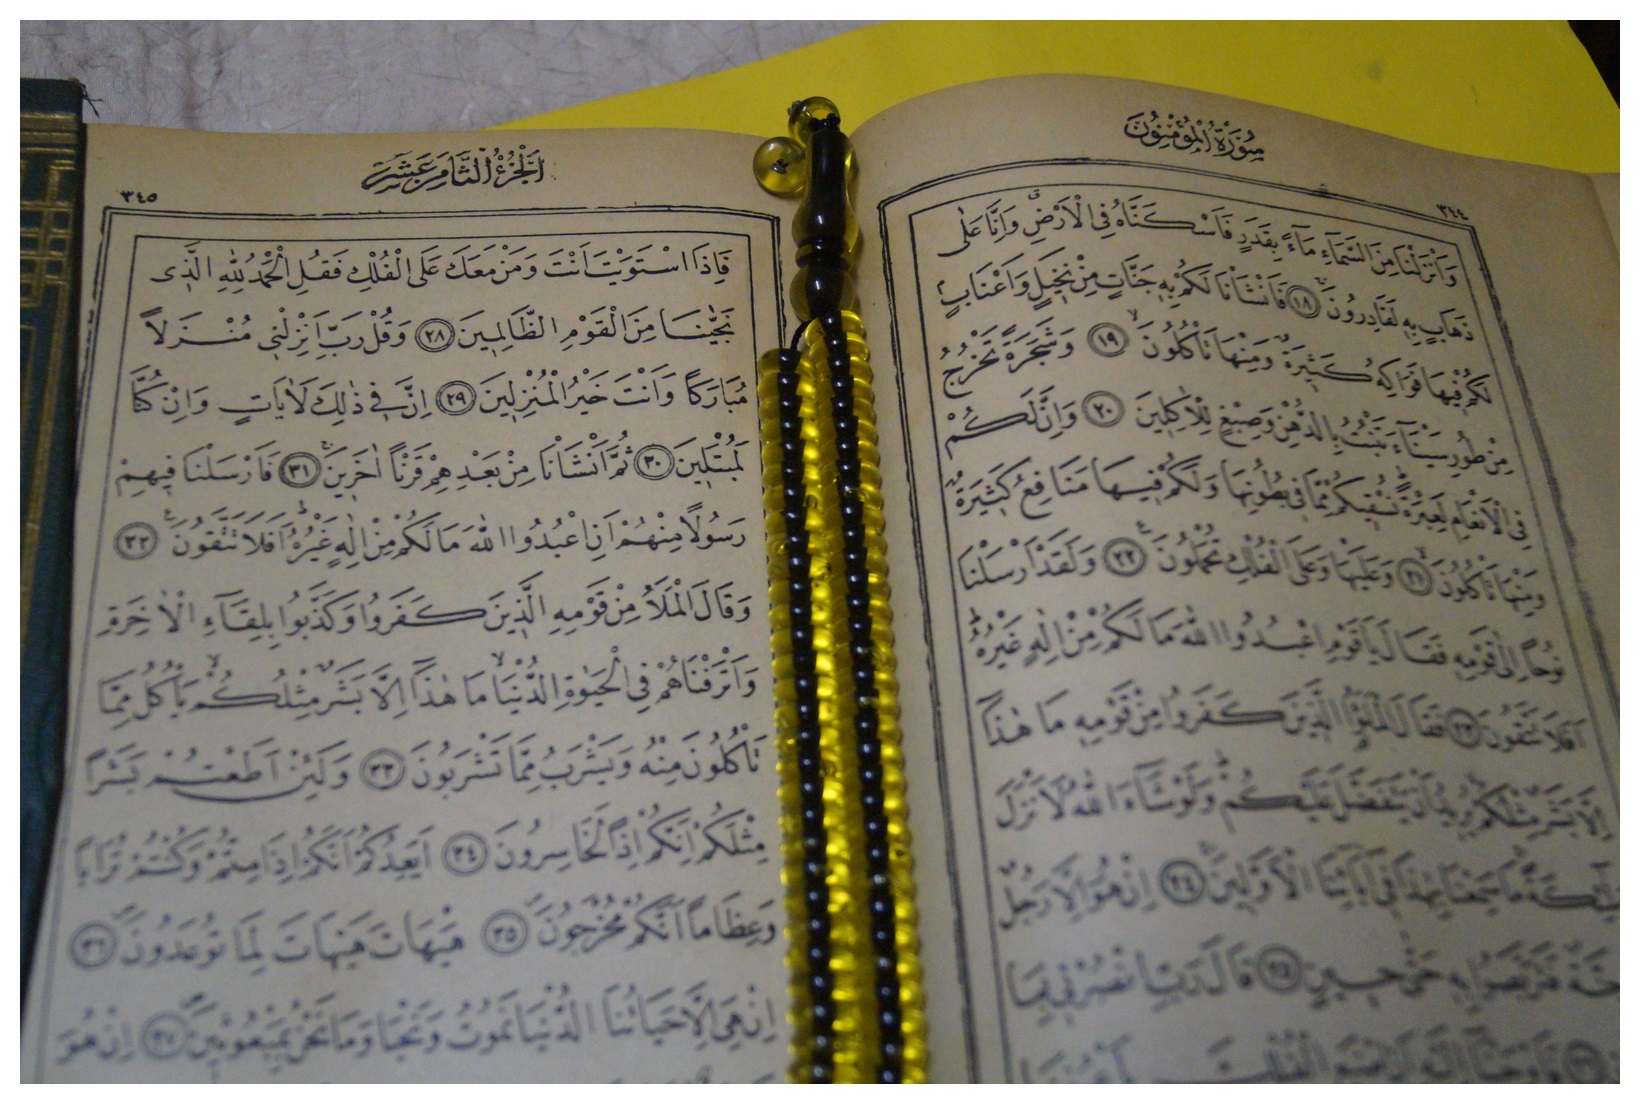 سُورَةُ الْمُؤْمِنُونَ
٣٤٤
وَاَنْزَلْنَا مِنَ السَّمَٓاءِ مَٓاءً بِقَدَرٍ فَاَسْكَنَّاهُ فِي الْاَرْضِۗ وَاِنَّا عَلٰى
ذَهَابٍ بِهٖ لَقَادِرُونَۚ ﴿١٨﴾ فَاَنْشَأْنَا لَكُمْ بِهٖ جَنَّاتٍ مِنْ نَخٖيلٍ وَاَعْنَابٍۘ
لَكُمْ فٖيهَا فَوَاكِهُ كَثٖيرَةٌ وَمِنْهَا تَأْكُلُونَۙ ﴿١٩﴾ وَشَجَرَةً تَخْرُجُ
مِنْ طُورِ سَيْنَٓاءَ تَنْبُتُ بِالدُّهْنِ وَصِبْغٍ لِلْاٰكِلٖينَ ﴿٢٠﴾ وَاِنَّ لَكُمْ
فِي الْاَنْعَامِ لَعِبْرَةًۜ نُسْقٖيكُمْ مِمَّا فٖي بُطُونِهَا وَلَكُمْ فٖيهَا مَنَافِعُ كَثٖيرَةٌ
وَمِنْهَا تَأْكُلُونَۙ ﴿٢١﴾ وَعَلَيْهَا وَعَلَى الْفُلْكِ تُحْمَلُونَۚ ﴿٢٢﴾ وَلَقَدْ اَرْسَلْنَا
نُوحًا اِلٰى قَوْمِهٖ فَقَالَ يَا قَوْمِ اعْبُدُوا اللّٰهَ مَا لَكُمْ مِنْ اِلٰهٍ غَيْرُهُۜ
اَفَلَا تَتَّقُونَ ﴿٢٣﴾ فَقَالَ الْمَلَؤُا الَّذٖينَ كَفَرُوا مِنْ قَوْمِهٖ مَا هٰذَٓا
اِلَّا بَشَرٌ مِثْلُكُمْ يُرٖيدُ اَنْ يَتَفَضَّلَ عَلَيْكُمْۜ وَلَوْ شَٓاءَ اللّٰهُ لَاَنْزَلَ
مَلٰٓئِكَةً مَا سَمِعْنَا بِهٰذَا فٖٓي اٰبَٓائِنَا الْاَوَّلٖينَۚ ﴿٢٤﴾ اِنْ هُوَ اِلَّا رَجُلٌ
فَتَرَبَّصُوا بِهٖ حَتّٰى حٖينٍ ﴿٢٥﴾ قَالَ رَبِّ انْصُرْنٖي بِمَا
اَلْجُزْءُ الثَّامِنَ عَشَرَ
٣٤٥
فَاِذَا اسْتَوَيْتَ اَنْتَ وَمَنْ مَعَكَ عَلَى الْفُلْكِ فَقُلِ الْحَمْدُ لِلّٰهِ الَّذٖي
نَجّٰينَا مِنَ الْقَوْمِ الظَّالِمٖينَ ﴿٢٨﴾ وَقُلْ رَبِّ اَنْزِلْنٖي مُنْزَلًا
مُبَارَكًا وَاَنْتَ خَيْرُ الْمُنْزِلٖينَ ﴿٢٩﴾ اِنَّ فٖي ذٰلِكَ لَاٰيَاتٍ وَاِنْ كُنَّا
لَمُبْتَلٖينَ ﴿٣٠﴾ ثُمَّ اَنْشَأْنَا مِنْ بَعْدِهِمْ قَرْنًا اٰخَرٖينَۚ ﴿٣١﴾ فَاَرْسَلْنَا فٖيهِمْ
رَسُولًا مِنْهُمْ اَنِ اعْبُدُوا اللّٰهَ مَا لَكُمْ مِنْ اِلٰهٍ غَيْرُهُۜ اَفَلَا تَتَّقُونَۚ ﴿٣٢﴾
وَقَالَ الْمَلَأُ مِنْ قَوْمِهِ الَّذٖينَ كَفَرُوا وَكَذَّبُوا بِلِقَٓاءِ الْاٰخِرَةِ
وَاَتْرَفْنَاهُمْ فِي الْحَيٰوةِ الدُّنْيَاۙ مَا هٰذَٓا اِلَّا بَشَرٌ مِثْلُكُمْۙ يَأْكُلُ مِمَّا
تَأْكُلُونَ مِنْهُ وَيَشْرَبُ مِمَّا تَشْرَبُونَ ﴿٣٣﴾ وَلَئِنْ اَطَعْتُمْ بَشَرًا
مِثْلَكُمْ اِنَّكُمْ اِذًا لَخَاسِرُونَ ﴿٣٤﴾ اَيَعِدُكُمْ اَنَّكُمْ اِذَا مِتُّمْ وَكُنْتُمْ تُرَابًا
وَعِظَامًا اَنَّكُمْ مُخْرَجُونَ ﴿٣٥﴾ هَيْهَاتَ هَيْهَاتَ لِمَا تُوعَدُونَ ﴿٣٦﴾
اِنْ هِيَ اِلَّا حَيَاتُنَا الدُّنْيَا نَمُوتُ وَنَحْيَا وَمَا نَحْنُ بِمَبْعُوثٖينَ ﴿٣٧﴾ اِنْ هُوَ